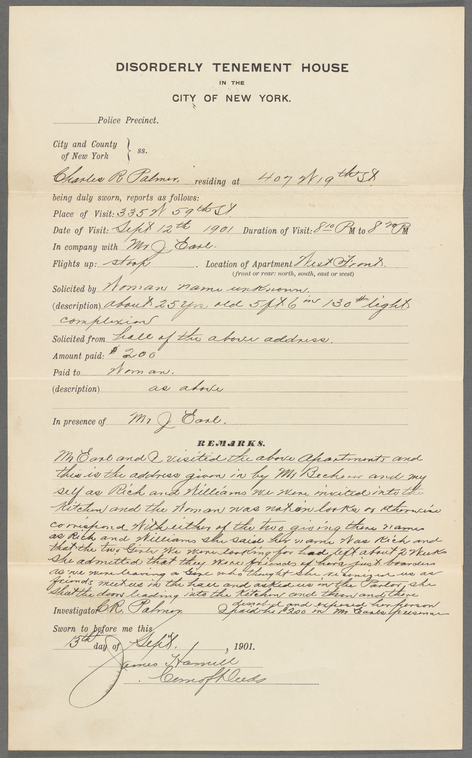 DISORDERLY TENEMENT HOUSE
IN THE
CITY OF NEW YORK.
Police Precinct.
City and County
of New York } ss.
Charles R Palmer. residing at 407 W 19th St
being duly sworn, reports as follows:
Place of Visit: 335 W 59th St
Date of Visit: Sept 12th 1901 Duration of Visit: 8 10 P M to 8 20 P M
In company with Mr J Earl.
Flights up: stoop Location of Apartment West Front
(front or rear: north, south, east or west)
Solicited by Woman name unknown.
(description) about 25 yrs old 5 ft 6 in 130 # light
complexion
Solicited from hall of the above address.
Amount paid: $2.00
Paid to Woman.
(description) as above
In presence of Mr J Earl.
REMARKS.
Mr Earl and I visited the above Apartments and
this is the address given in by Mr and my
self as Rich and Williams We were invited into the
Kitchen and the Woman was not in looks or otherwise
correspond with either of the two giving there name
as Rich and Williams she said her name Was Rich and
that the two Girls We were looking for had left about 2 Weeks
She admitted that they Were friends of hers just boarders
as we were leaving a Girl who thought she recognized us as
friends met us in the hall and asked us in the Parlor, she
Shut the door leading into the Kitchen and then and there
and exposed her person
Investigator C R Palmer I paid her $2.00 in Mr Earls presence
Sworn to before me this
15th day of Sept. , 1901.
James Hamill
Com of Deeds